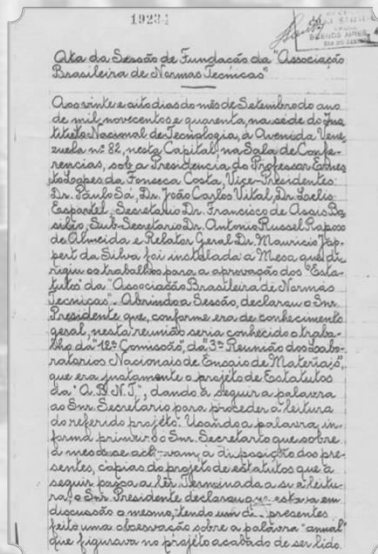 19234
BUENOS AIRES
Ata da Sessão de Fundação da "Associação
Brasileira de Normas Tecnicas"
Aos vinte e oito dias do mês de Setembro do ano
de mil novecentos e quarenta, na séde do Ins-
tituto Nacional de Tecnologia, à Avenida Vene-
zuela nº 82, nesta Capital, na Sala de Confe-
rencias, sob a Presidencia do Professor Ernes-
to Lopes da Fonseca Costa, Vice-Presidentes:
Dr. Paulo Sá, Dr. João Carlos Vital, Dr. Loelis
Espartel, Secretario Dr. Francisco de Assis Ba-
silio, Sub-Secretario Dr. Antonio Russel Raposo
de Almeida e Relator Geral Dr. Mauricio Jop-
pert da Silva foi instalada a Mesa que di-
rigiu os trabalhos para a aprovação dos "Esta-
tutos da "Associação Brasileira de Normas
Tecnicas". Abrindo a Sessão, declarou o Snr.
Presidente que, conforme era de conhecimento
geral, nesta reunião seria conhecido o traba-
lho da "12ª Comissão, da "3ª Reunião dos Labo-
ratorios Nacionais de Ensaio de Materiais",
que era justamente o projeto de Estatutos
da "A.B.N.T.", dando a seguir a palavra
ao Snr. Secretario para proceder a leitura
do referido projeto. Usando a palavra, in-
forma primeiro o Snr. Secretario que sobre
a mesa se achavam a disposição dos pre-
sentes, cópias do projeto de estatutos que a
seguir passa a lêr. Terminada a leitu-
ra, o Snr. Presidente declarou que estava em
discussão o mesmo, tendo um dos presentes
feito uma observação sobre a palavra "annual"
que figurava no projeto acabado de ser lido.